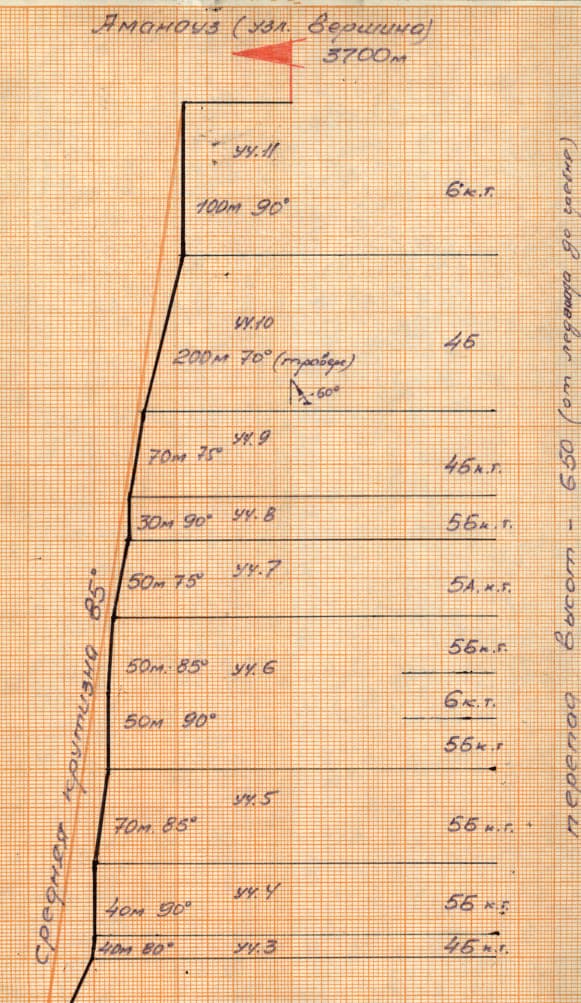 Аманауз (узл. вершина)
3700м
уч.11
100м 90°
6к.т.
уч.10
200м 70° (траверс)
60°
4б
уч.9
70м 75°
4б к.т.
30м 90° уч.8
5б к.т.
50м 75° уч.7
5А. к.т.
50м. 85° уч.6
5б к.т.
6 к.т.
50м 90°
5б к.т
уч.5
70м. 85°
5б к.т.
уч.4
40м 90°
5б к.т.
40м 80° уч.3
4б к.т.
средняя крутизна 85°
перепад высот - 650 (от ледника до